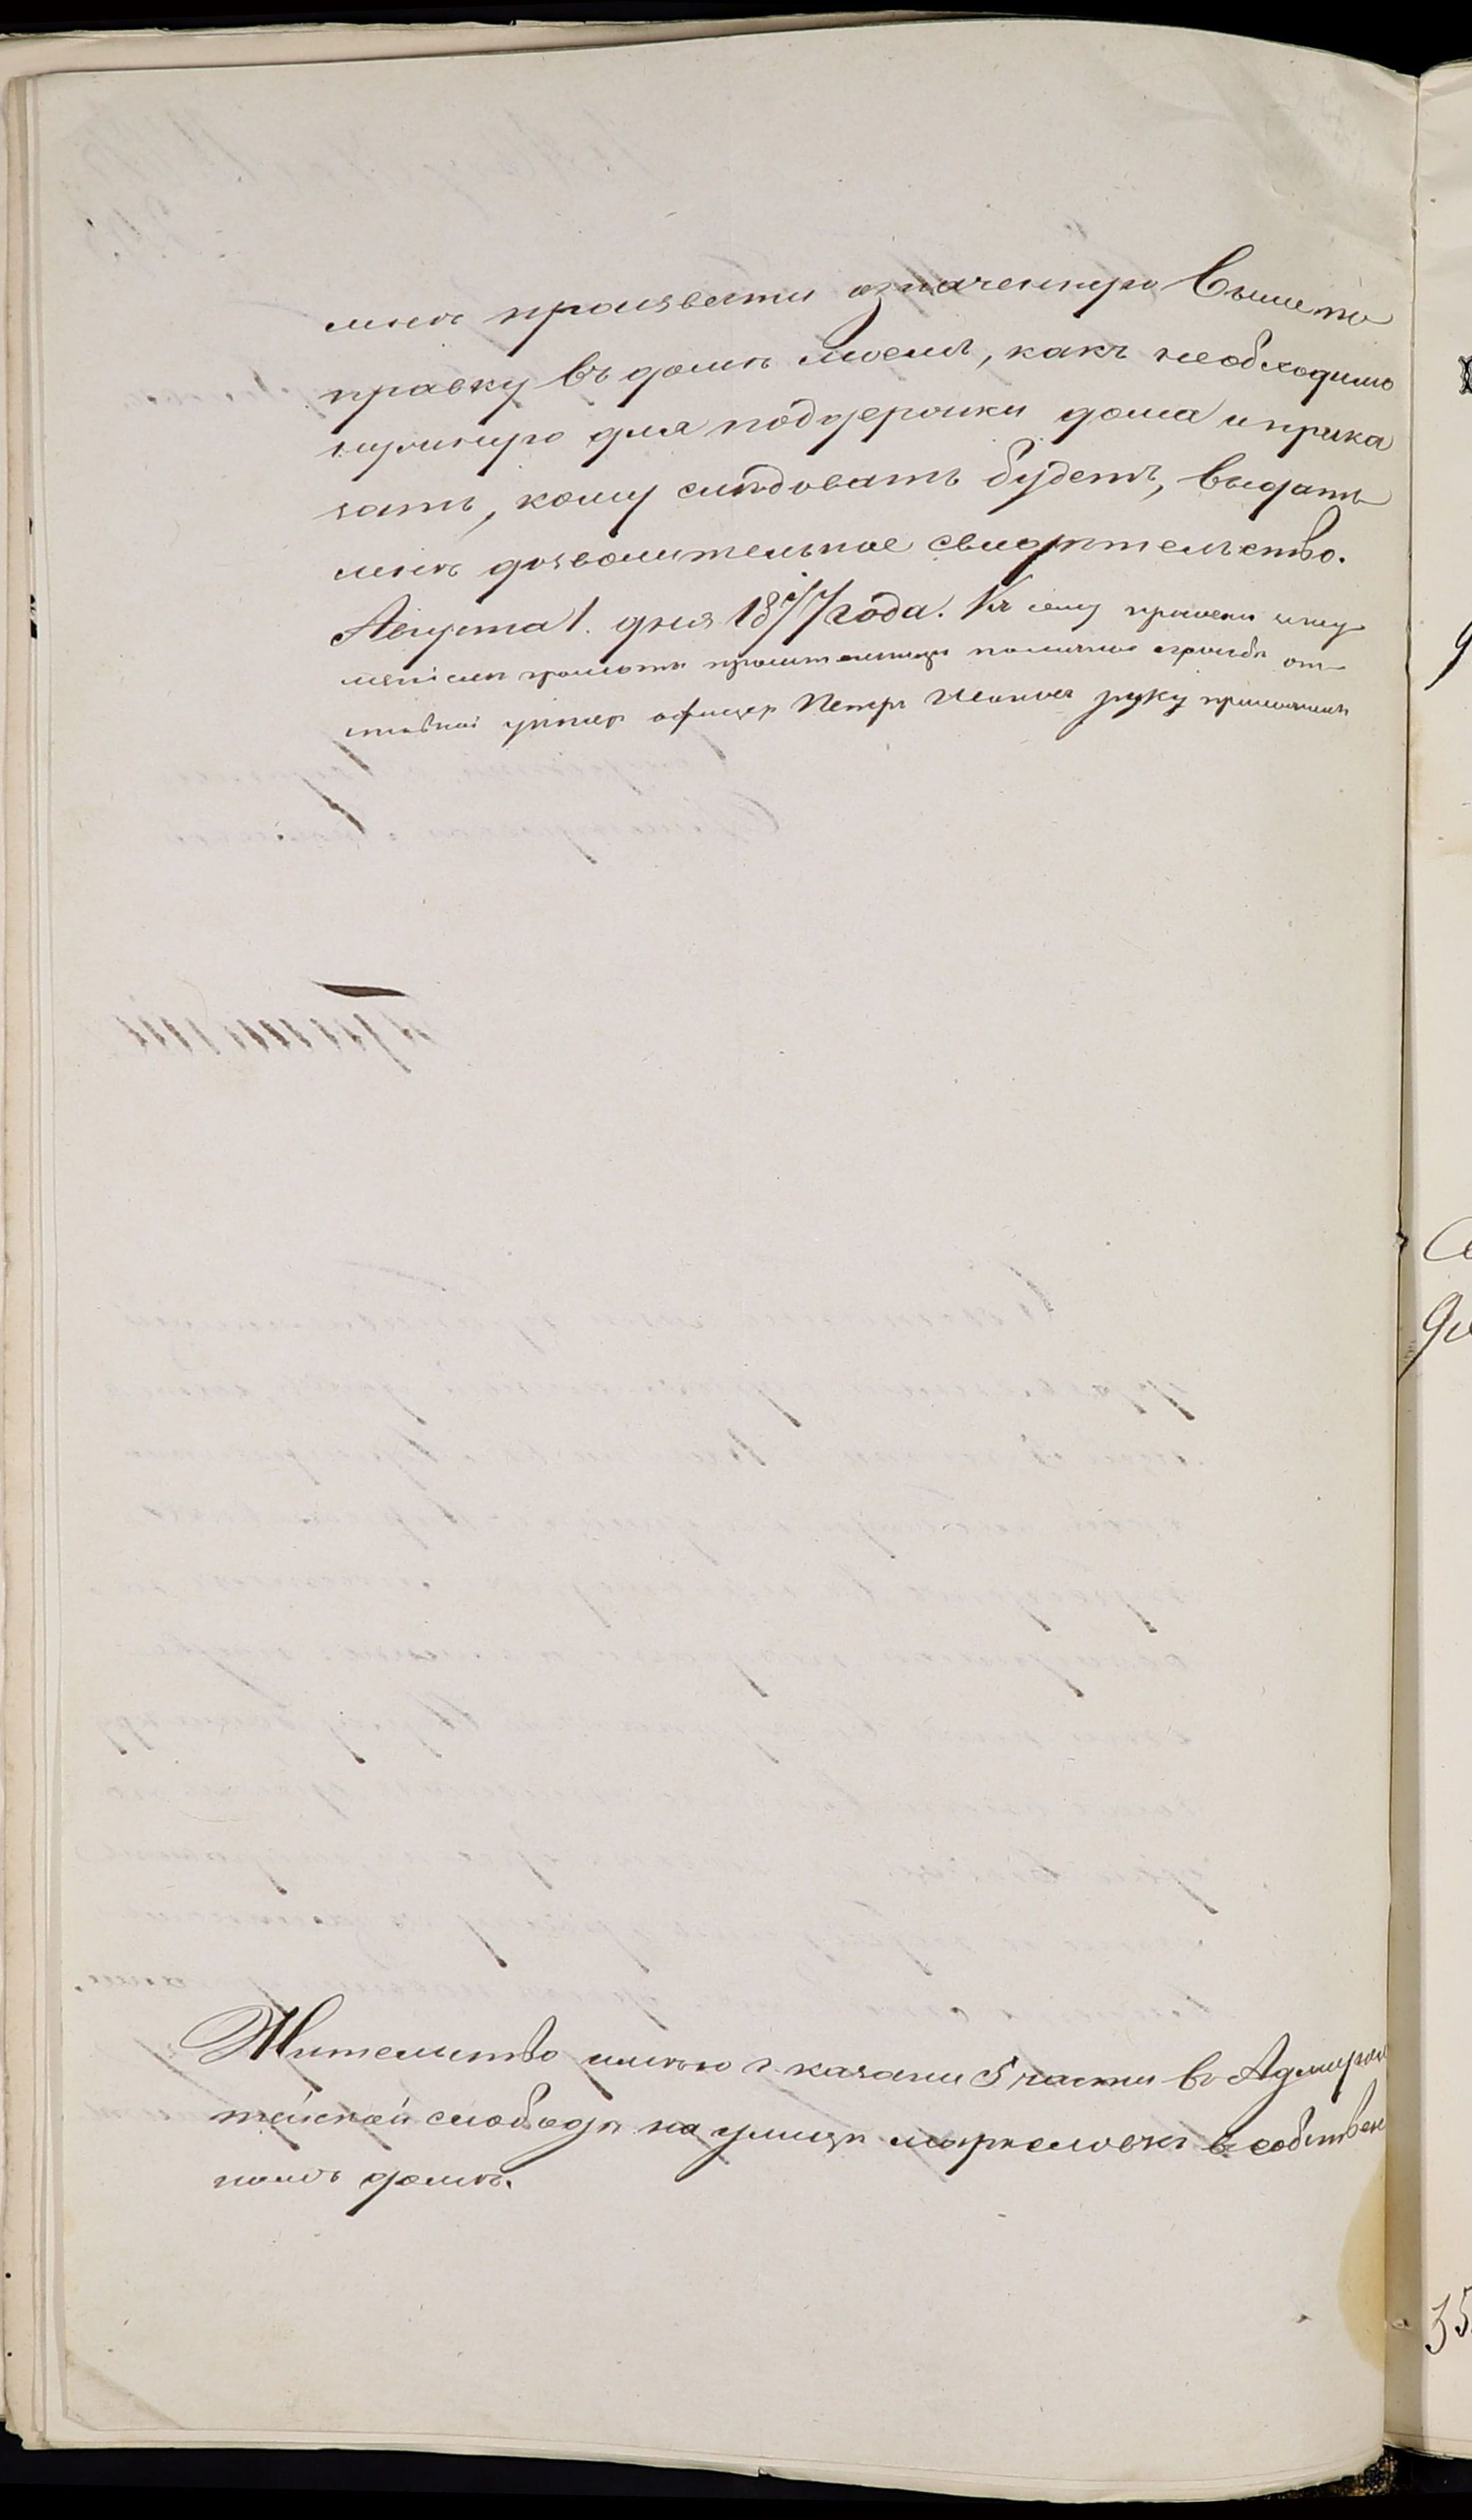 мнѣ произвести означенную выше по
правку въ домѣ моемъ, какъ необходимо
нужную для поддержки дома и прика
зать, кому слѣдовать будетъ, выдать
мнѣ дозволительное свидѣтельство.
Августа 1 дня 1877 года. Къ сему прошенію
просительницы по личной прозьбѣ от
ставной унтеръ офицеръ Петръ руку приложилъ
Жительство имѣю г. казани 5 части въ Адмирал
тейской слободѣ на улицѣ в собствен
номъ домѣ.